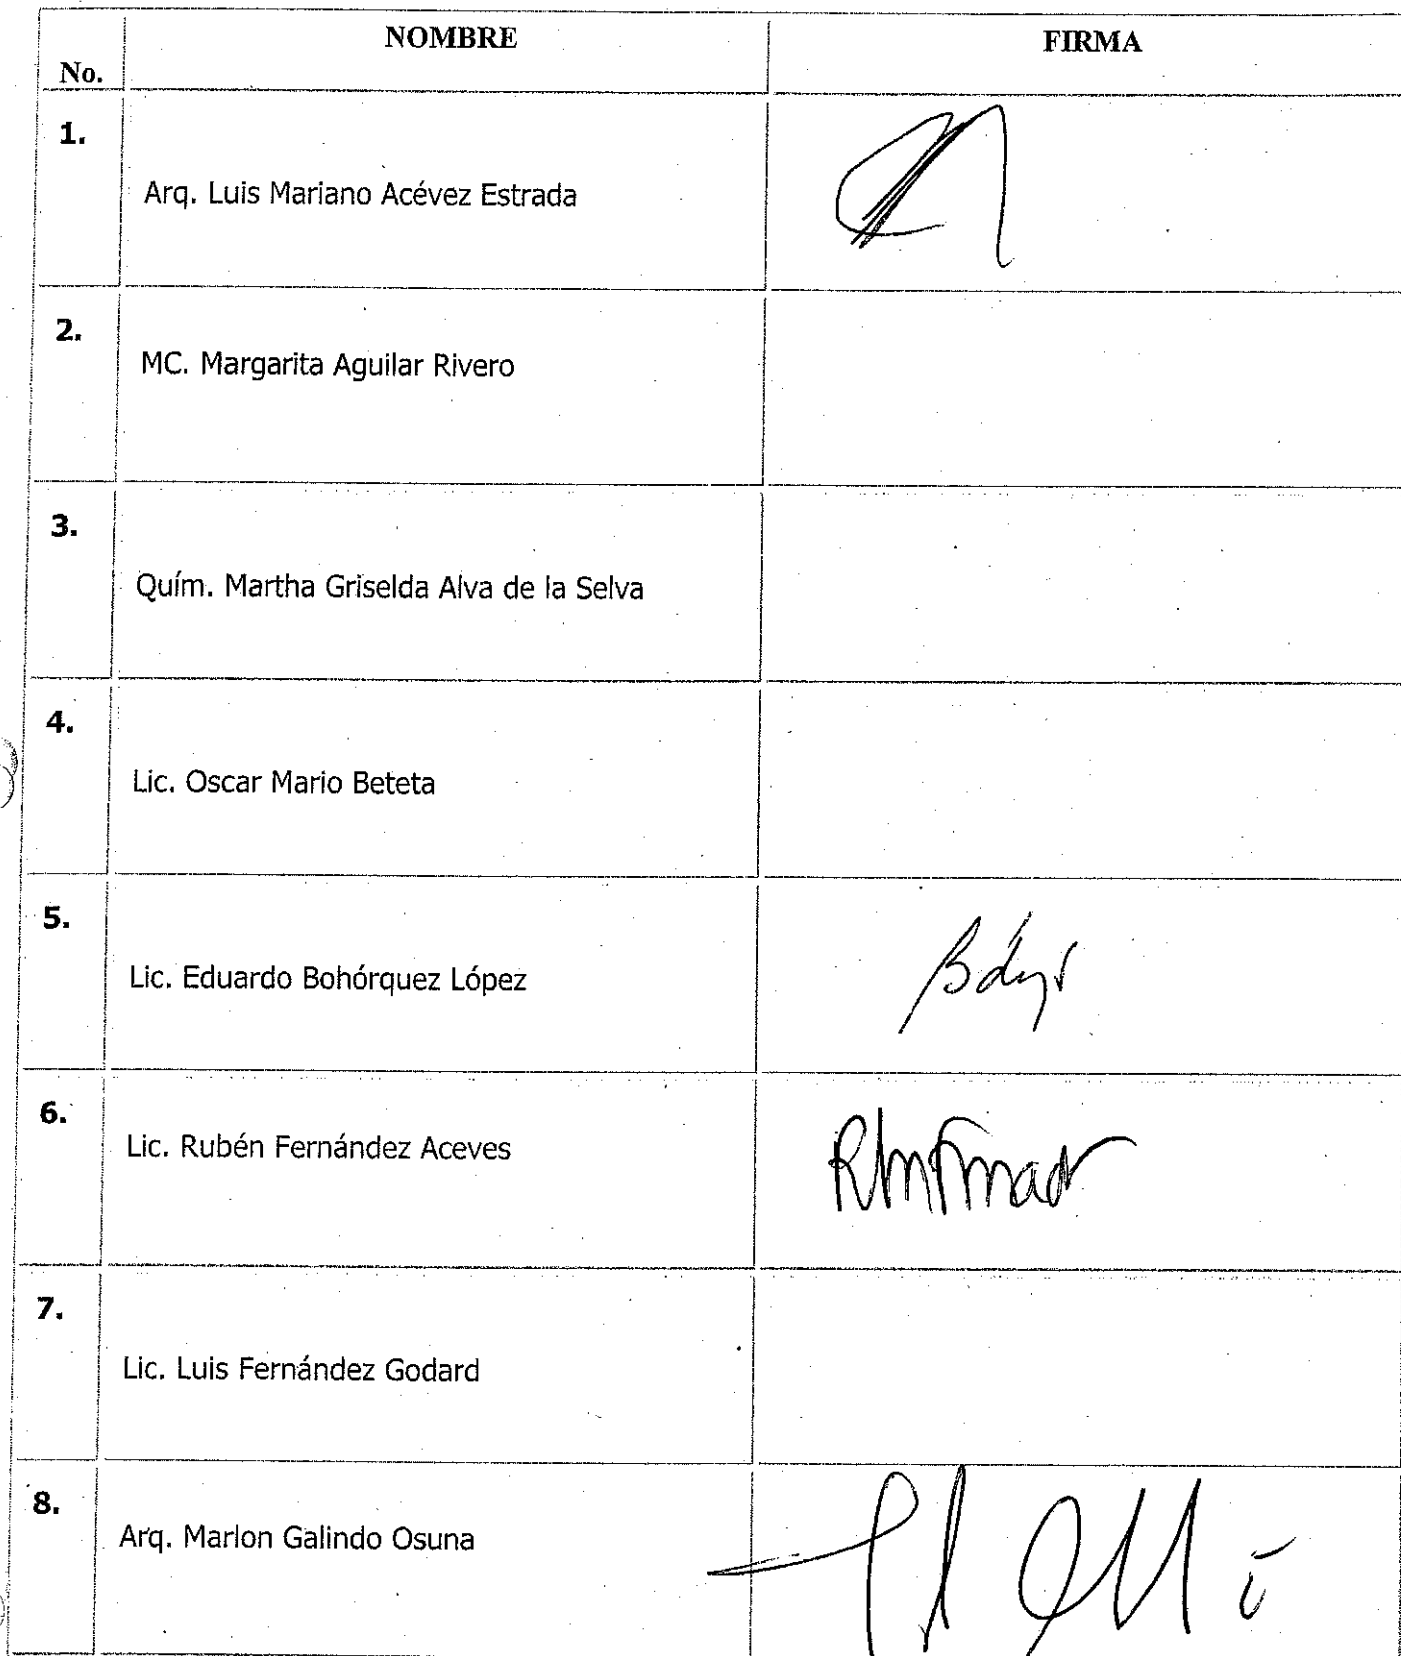 NOMBRE
FIRMA
No.
1.
Arq. Luis Mariano Acévez Estrada
2.
MC. Margarita Aguilar Rivero
3.
Quím. Martha Griselda Alva de la Selva
4.
Lic. Oscar Mario Beteta
5.
Lic. Eduardo Bohórquez López
6.
Lic. Rubén Fernández Aceves
7.
Lic. Luis Fernández Godard
8.
Arq. Marlon Galindo Osuna